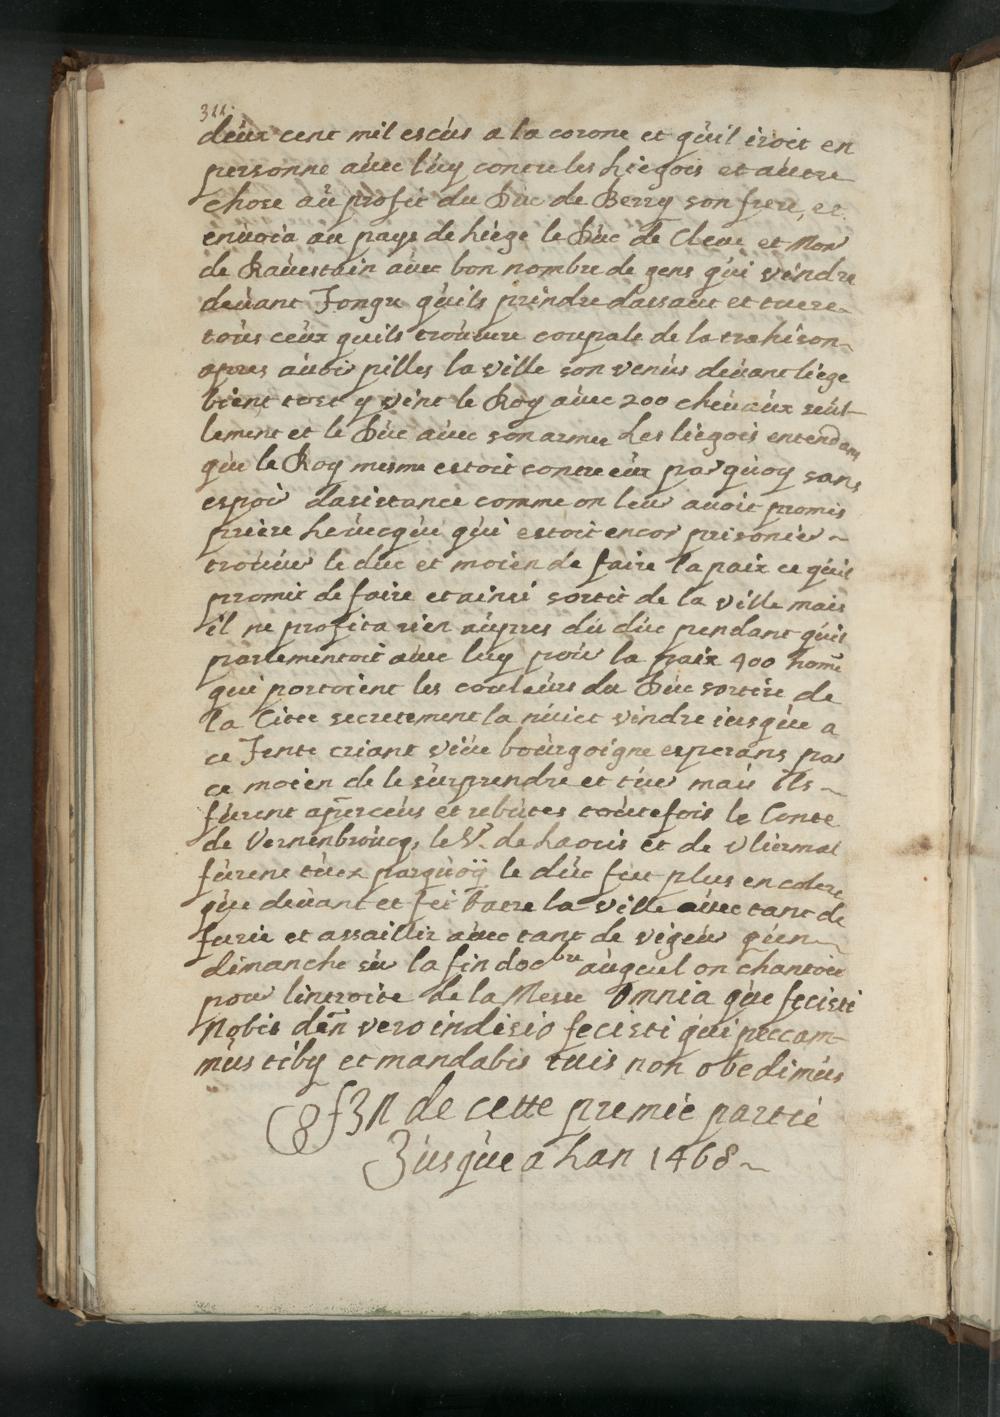 311.
deux cent mil escus a la corone et quil iroit en
personne avec luy contre les Liegois et autre
chose au profit du Duc de Berry son frere, et
envoia au pays de Liege le Duc de Cleve et Monr
de Ravestain avec bon nombre de gens qui vindre
devant Tongre quils prindre dassaut et tuere
tous ceux quils trouvere coupale de la trahison
apres avoir pilles la ville son venus devant liege
bient tost y vint le Roy avec 200 chevaux seul-
lement et le Duc avec son armee Les liegois entendans
que le Roy mesme estoit contre eux parquoy sans
espoir dasistance comme on leur avoit promis
priere levecque qui estoit encor prisonier
trouver le duc et moien de faire la paix ce quil
promit de faire et ainsi sortit de la ville mais
il ne profita rien aupres du duc pendant quil
parlementoit avec luy pour la paix 400 home
qui portoient les couleurs du Duc sortire de
la Citee secretement la nuict vindre iusque a
ce Tente criant vive bourgoigne esperans par
ce moien de le surprendre et tuer mais ils
furent aperceus et rebutes toutefois le Conte
de Vernenbroucq, le Sr. de haocis et de vliermal
furent tuez parquoÿ le duc fut plus en colere
que devant et fit batre la ville avec tant de
furie et assaillir avec tant de vigeur quen
dimanche sur la fin docbre auquel on chantoit
pour lintroite de la Messe Omnia que fecisti
Nobis dñe vero indisio fecisti qui peccam-
mus tiby et mandabis tuis non obedimus
FIN de cette premie partie
Iusque a Lan 1468